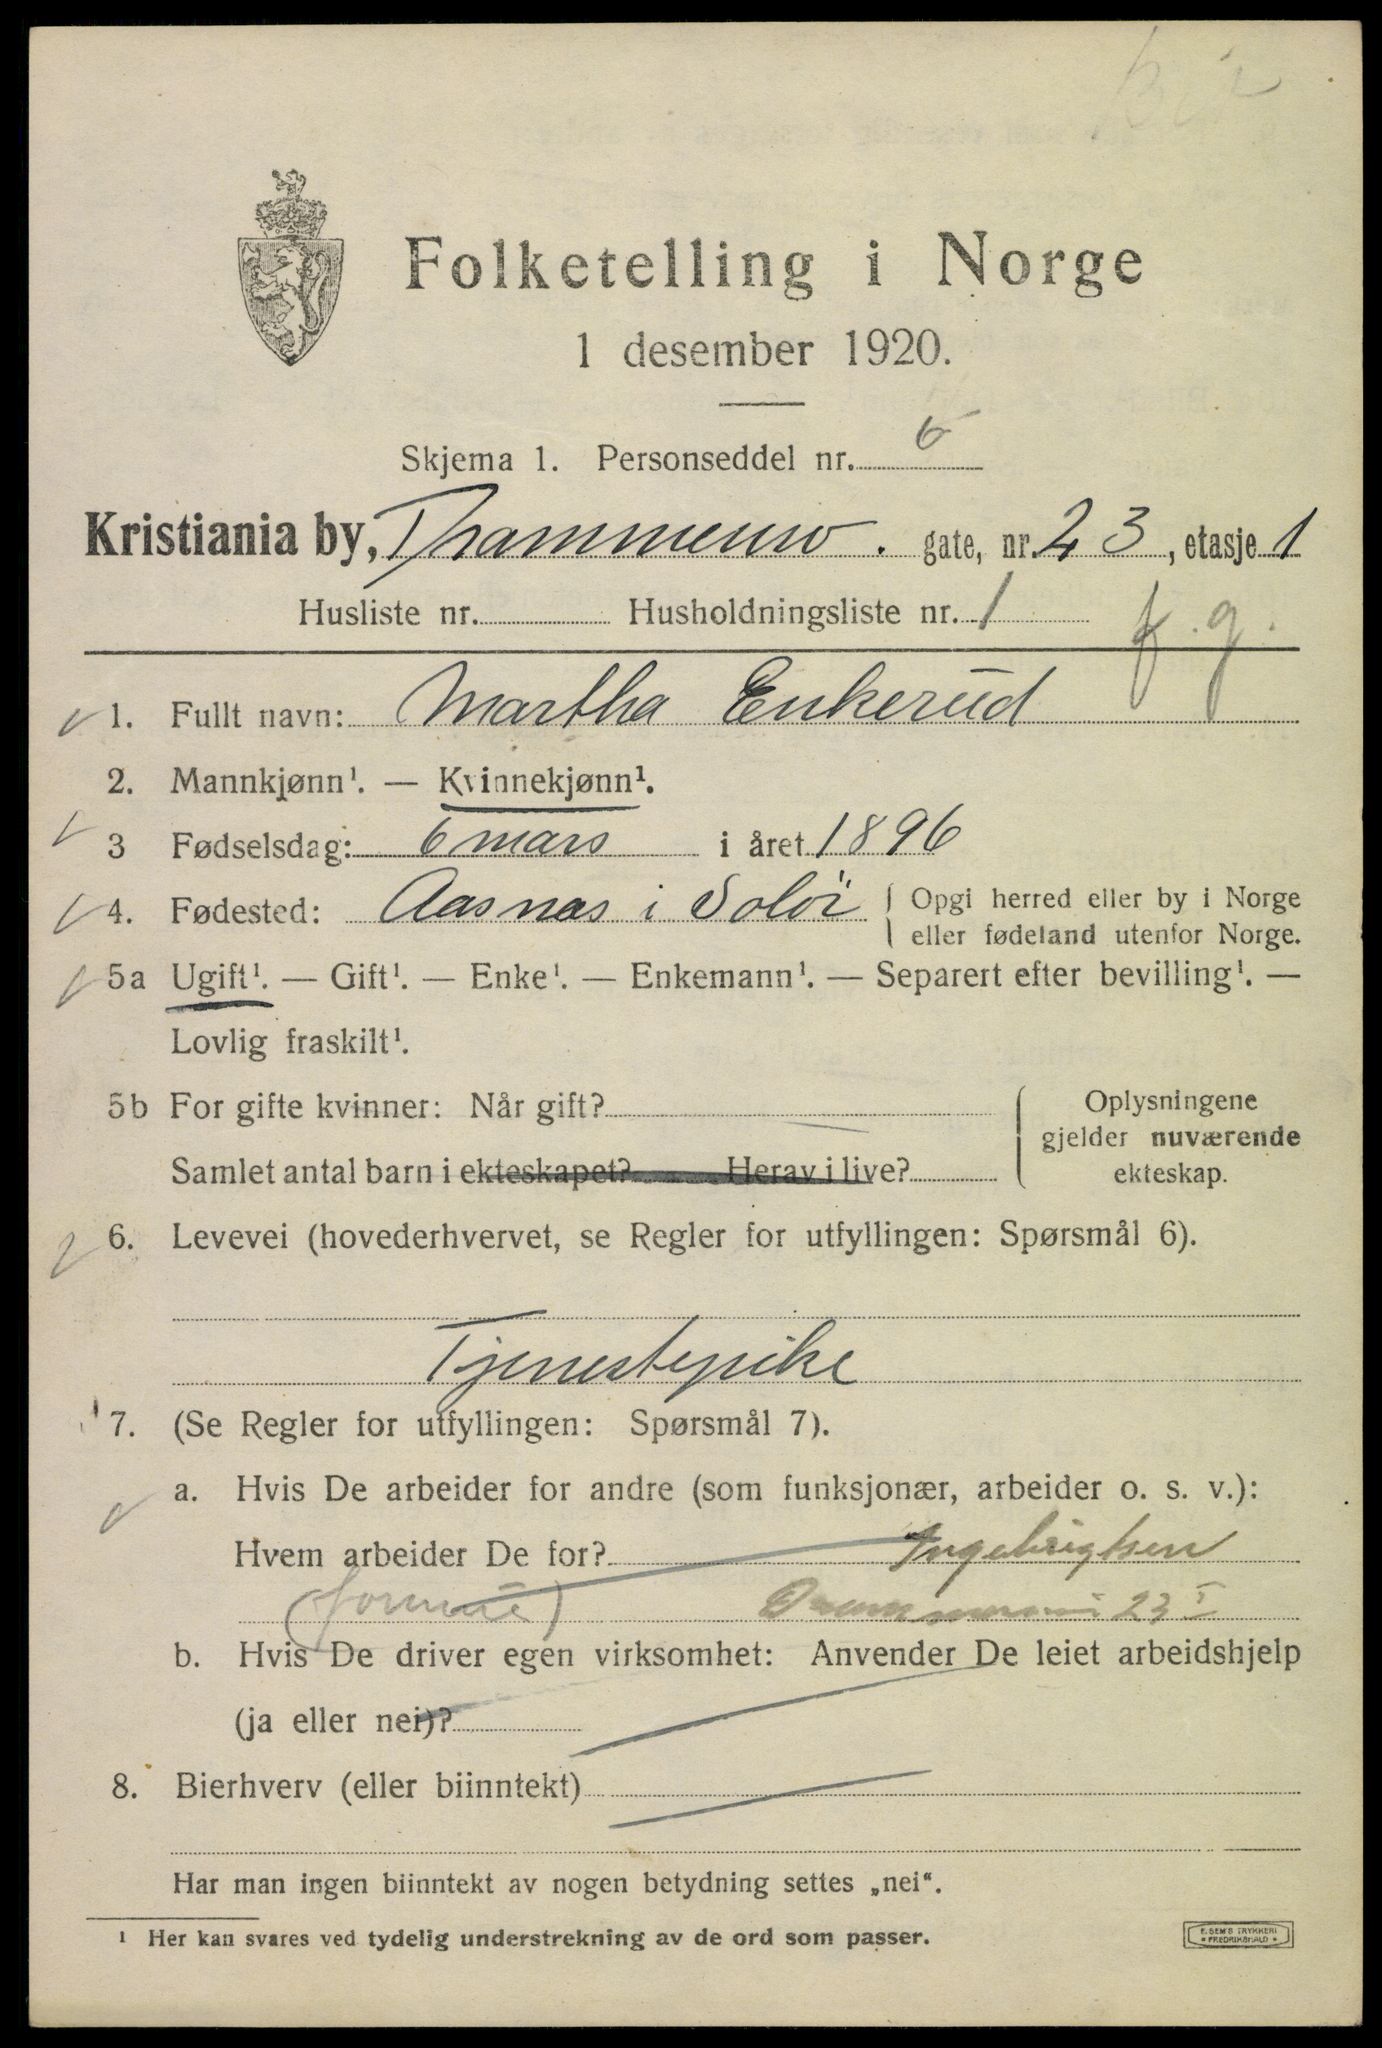 Folketelling i Norge
1 desember 1920.
Skjema 1. Personseddel nr. 6
Kristiania by, gate, nr. 23, etasje 1
Husliste nr. Husholdningsliste nr. 1
f. g.
1. Fullt navn: Martha Enkerud
2. Mannkjønn¹. — Kvinnekjønn¹.
3 Fødselsdag: 6 mars i året 1896
4. Fødested: Aasnas i Solör { Opgi herred eller by i Norge
eller fødeland utenfor Norge.
5a Ugift¹. — Gift¹. — Enke¹. — Enkemann¹. — Separert efter bevilling¹. —
Lovlig fraskilt¹.
5b For gifte kvinner: Når gift? { Oplysningene
gjelder nuværende
Samlet antal barn i ekteskapet? Herav i live? ekteskap.
6. Levevei (hovederhvervet, se Regler for utfyllingen: Spørsmål 6).
Tjenestepike
7. (Se Regler for utfyllingen: Spørsmål 7).
a. Hvis De arbeider for andre (som funksjonær, arbeider o. s. v.):
Hvem arbeider De for? Ingebrigtsen
23 I
b. Hvis De driver egen virksomhet: Anvender De leiet arbeidshjelp
(ja eller nei)?
8. Bierhverv (eller biinntekt)
Har man ingen biinntekt av nogen betydning settes „nei“.
¹ Her kan svares ved tydelig understrekning av de ord som passer.
E. SEM'S TRYKKERI
FREDRIKSHALD